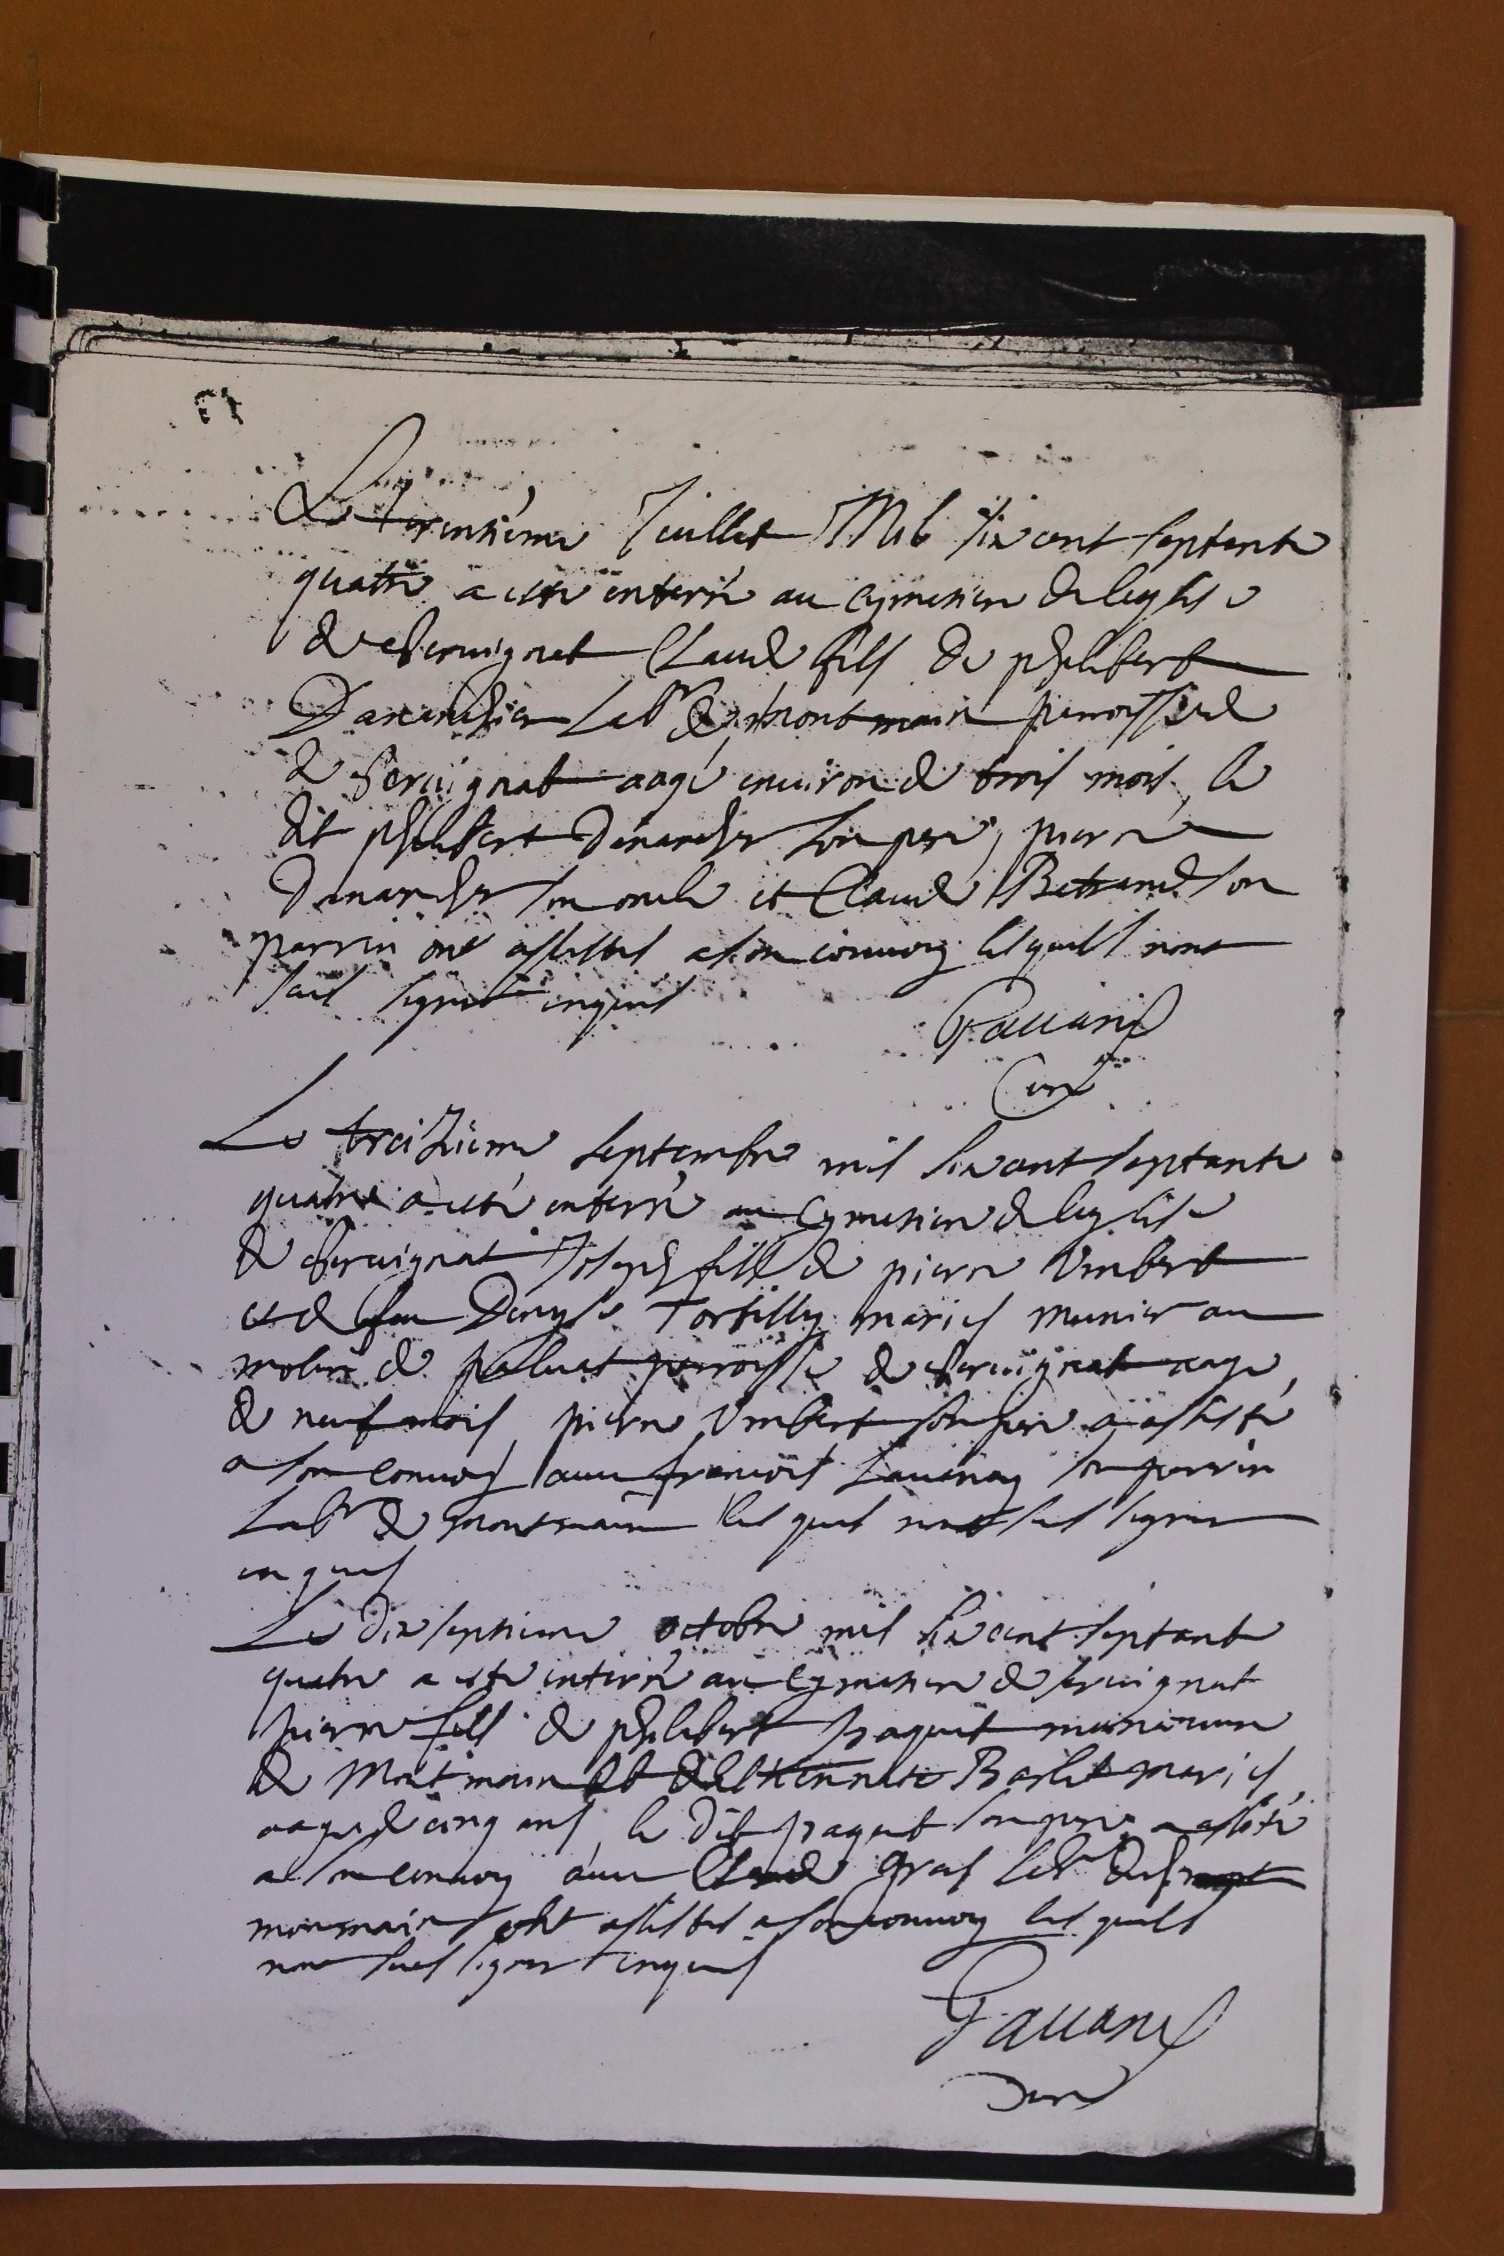 Le trentieme Juillet Mil six cent septante
quatre a esté enterré au cymetiere de leglise
de cheruignat Claude fils de philibert
Danancher Labr de montmain parroisse
de cheruignat aagé enuiron de trois mois, le
dit philibert Danancher son pere, pierre
Danancher son oncle et Claude Betrand son
parrin ont assistes a son conuoy lesquels nont
sceu signer enquis
Gauuand
Curé
Le treizieme septembre mil six cent septante
quatre a esté enterré au cymetiere de leglise
de cheruignat Joseph fils de pierre Vmbert
et de feu Denyse Tortilly mariés munier au
molin de paluat parroisse de cheruignat aagé
de neuf mois pierre Vmbert son pere a assisté
a son conuoy auec francois son parrin
Labr de montmain lesquels nont sceu signer
enquis
Le dix septieme octobre mil six cent septante
quatre a esté enterré au cymetiere de cheruignat
pierre fils de philibert paquet
de Montmain et de estiennette Barlet mariés
aagé de cinq ans, le dit paquet son pere a assisté
a son conuoy auec Claude gras Labr de
monmain ont assistes a son conuoy lesquels
nont sceu signer enquis
Gauuand
Curé